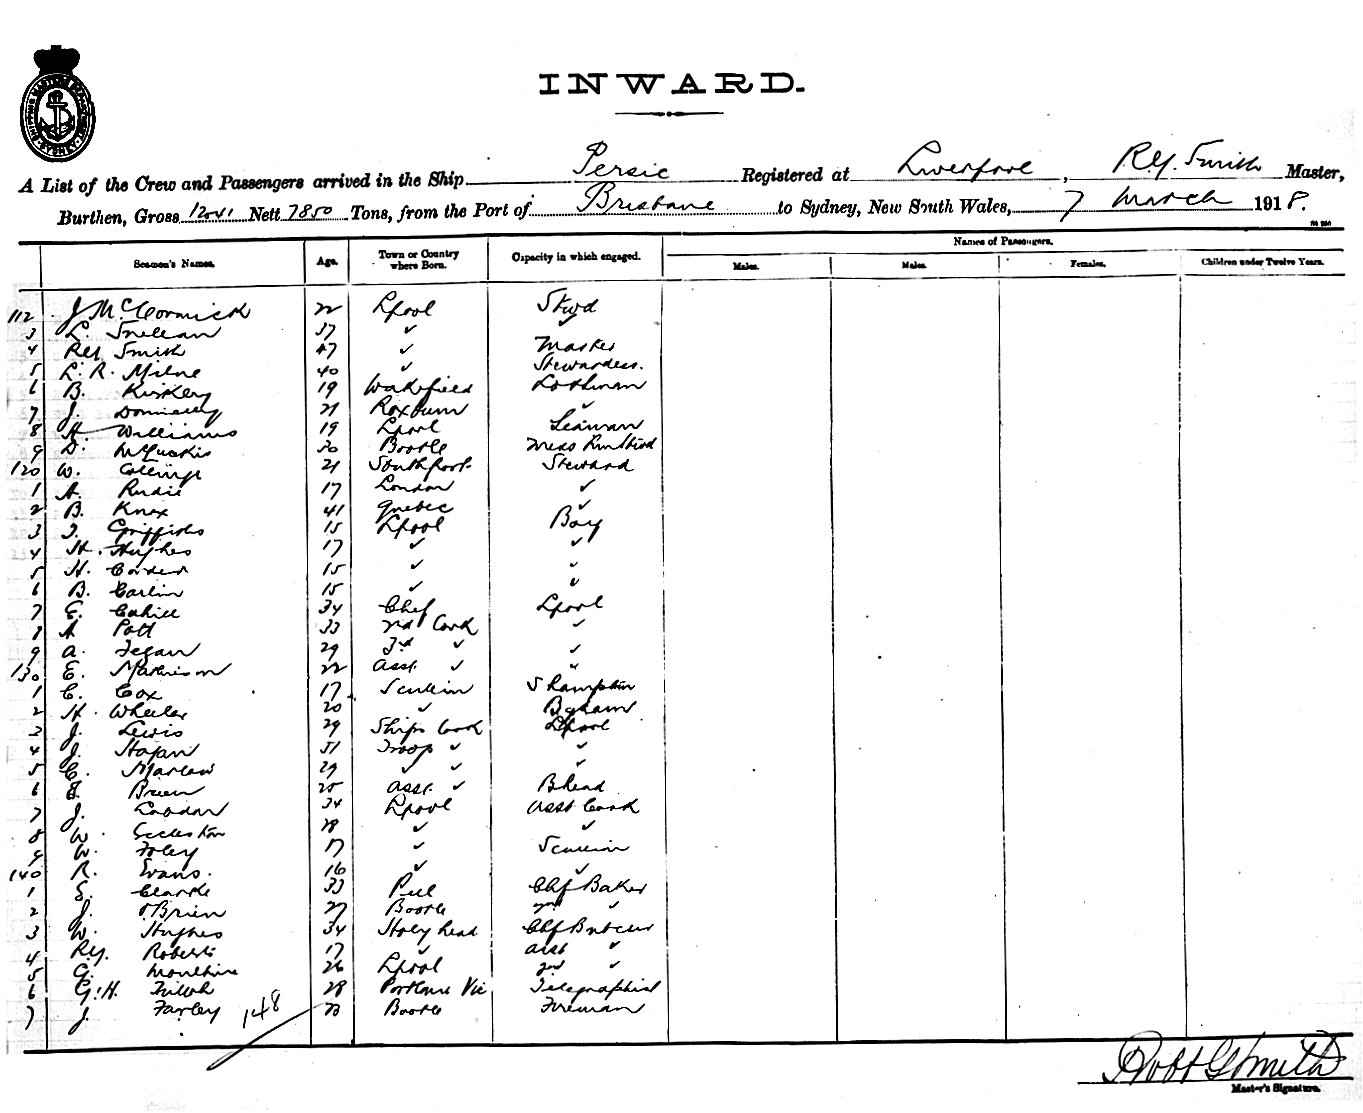 SHIPPING MASTERS DEPARTMENT SYDNEY
INWARD.
A List of the Crew and Passengers arrived in the Ship Persic Registered at Liverpool, R.G. Smith Master,
Burthen, Gross 12041 Nett 7850 Tons, from the Port of Brisbane to Sydney, New South Wales, 7 March 1918.
Names of Passengers.
Seamen's Names. Age. Town or Country where Born. Capacity in which engaged. Males. Males. Females. Children under Twelve Years.
112 J McCormick 22 Lpool Stwd
3 L. 37 ✓ ✓
4 RG Smith 47 ✓ Master
5 L. R. Milne 40 ✓ Stewardess.
6 B. 19 Wakefield
7 J. Donnelly 21 ✓
8 H Williams 19 Lpool Seaman
9 D. 30 Bootle Mess
120 W. 21 Southport Steward
1 A. 17 London ✓
2 B. Knox 41 Quebec ✓
3 J. Griffiths 15 Lpool Boy
4 H. Hughes 17 ✓ ✓
5 H. 15 ✓ ✓
6 B. Carlin 15 ✓ ✓
7 E. Cahill 34 Chef Lpool
8 A Pott 33 2nd Cook ✓
9 A. Fegan 29 3rd ✓ ✓
130 E. Mathieson 22 Asst. ✓ "
1 C. Cox 17 Scullin S'hampton
2 H. Wheeler 20 ✓
3 J. Lewis 29 Ships Cook Lpool
4 J. Hogan 51 Troop ✓ ✓
5 C. 29 ✓ ✓ ✓
6 Brien 25 Asst. ✓ Bhead
7 J. 34 Lpool Asst Cook
8 W. Eccleston 28 ✓ ✓
9 W. Foley 17 ✓ Scullin
140 R. Evans. 16 ✓ ✓
1 E. Clarke 33 Peel Chf Baker
2 J. O'Brien 27 Bootle 2nd ✓
3 W. Hughes 34 Holyhead Chf Butcher
4 RG. Roberts 17 ✓ Asst ✓
5 G. 26 Lpool 2nd ✓
6 G.H. 28 Portland Vic Telegraphist
7 J. Farley 23 Bootle Fireman
148
Robt G Smith
Master's Signature.